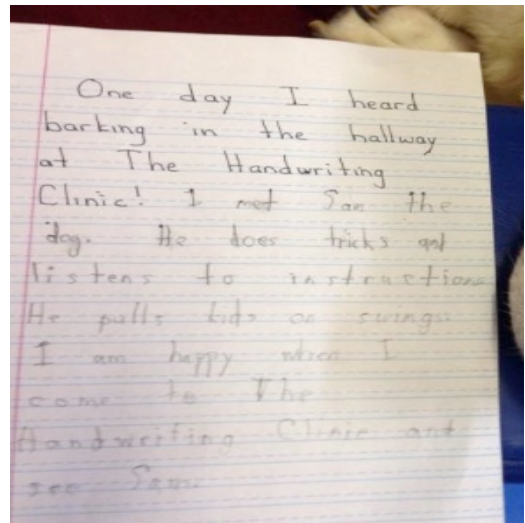 One day I heard
barking in the hallway
at The Handwriting
Clinic! I met Sam the
dog. He does tricks and
listens to instructions
He pulls kids on swings.
I am happy when I
come to The
Handwriting Clinic and
see Sam.